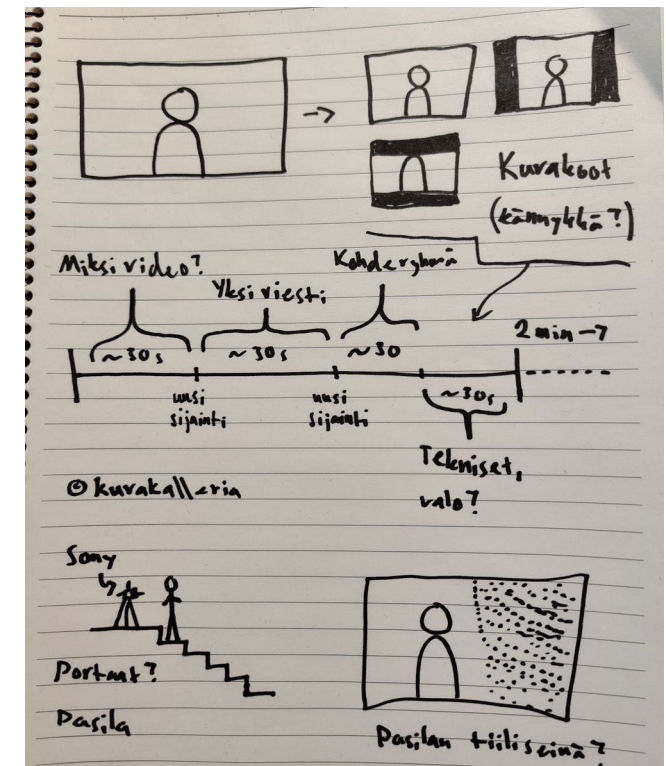 Kuvakoot
(kännykkä?)
Miksi video?
Yksi viesti
Kohderyhmä
~30s
~30s
~30
2min →
uusi
sijainti
uusi
sijainti
~30s
Tekniset,
valo?
© kuvakalleria
Sony
Portaat?
Pasila
Pasilan tiiliseinä?